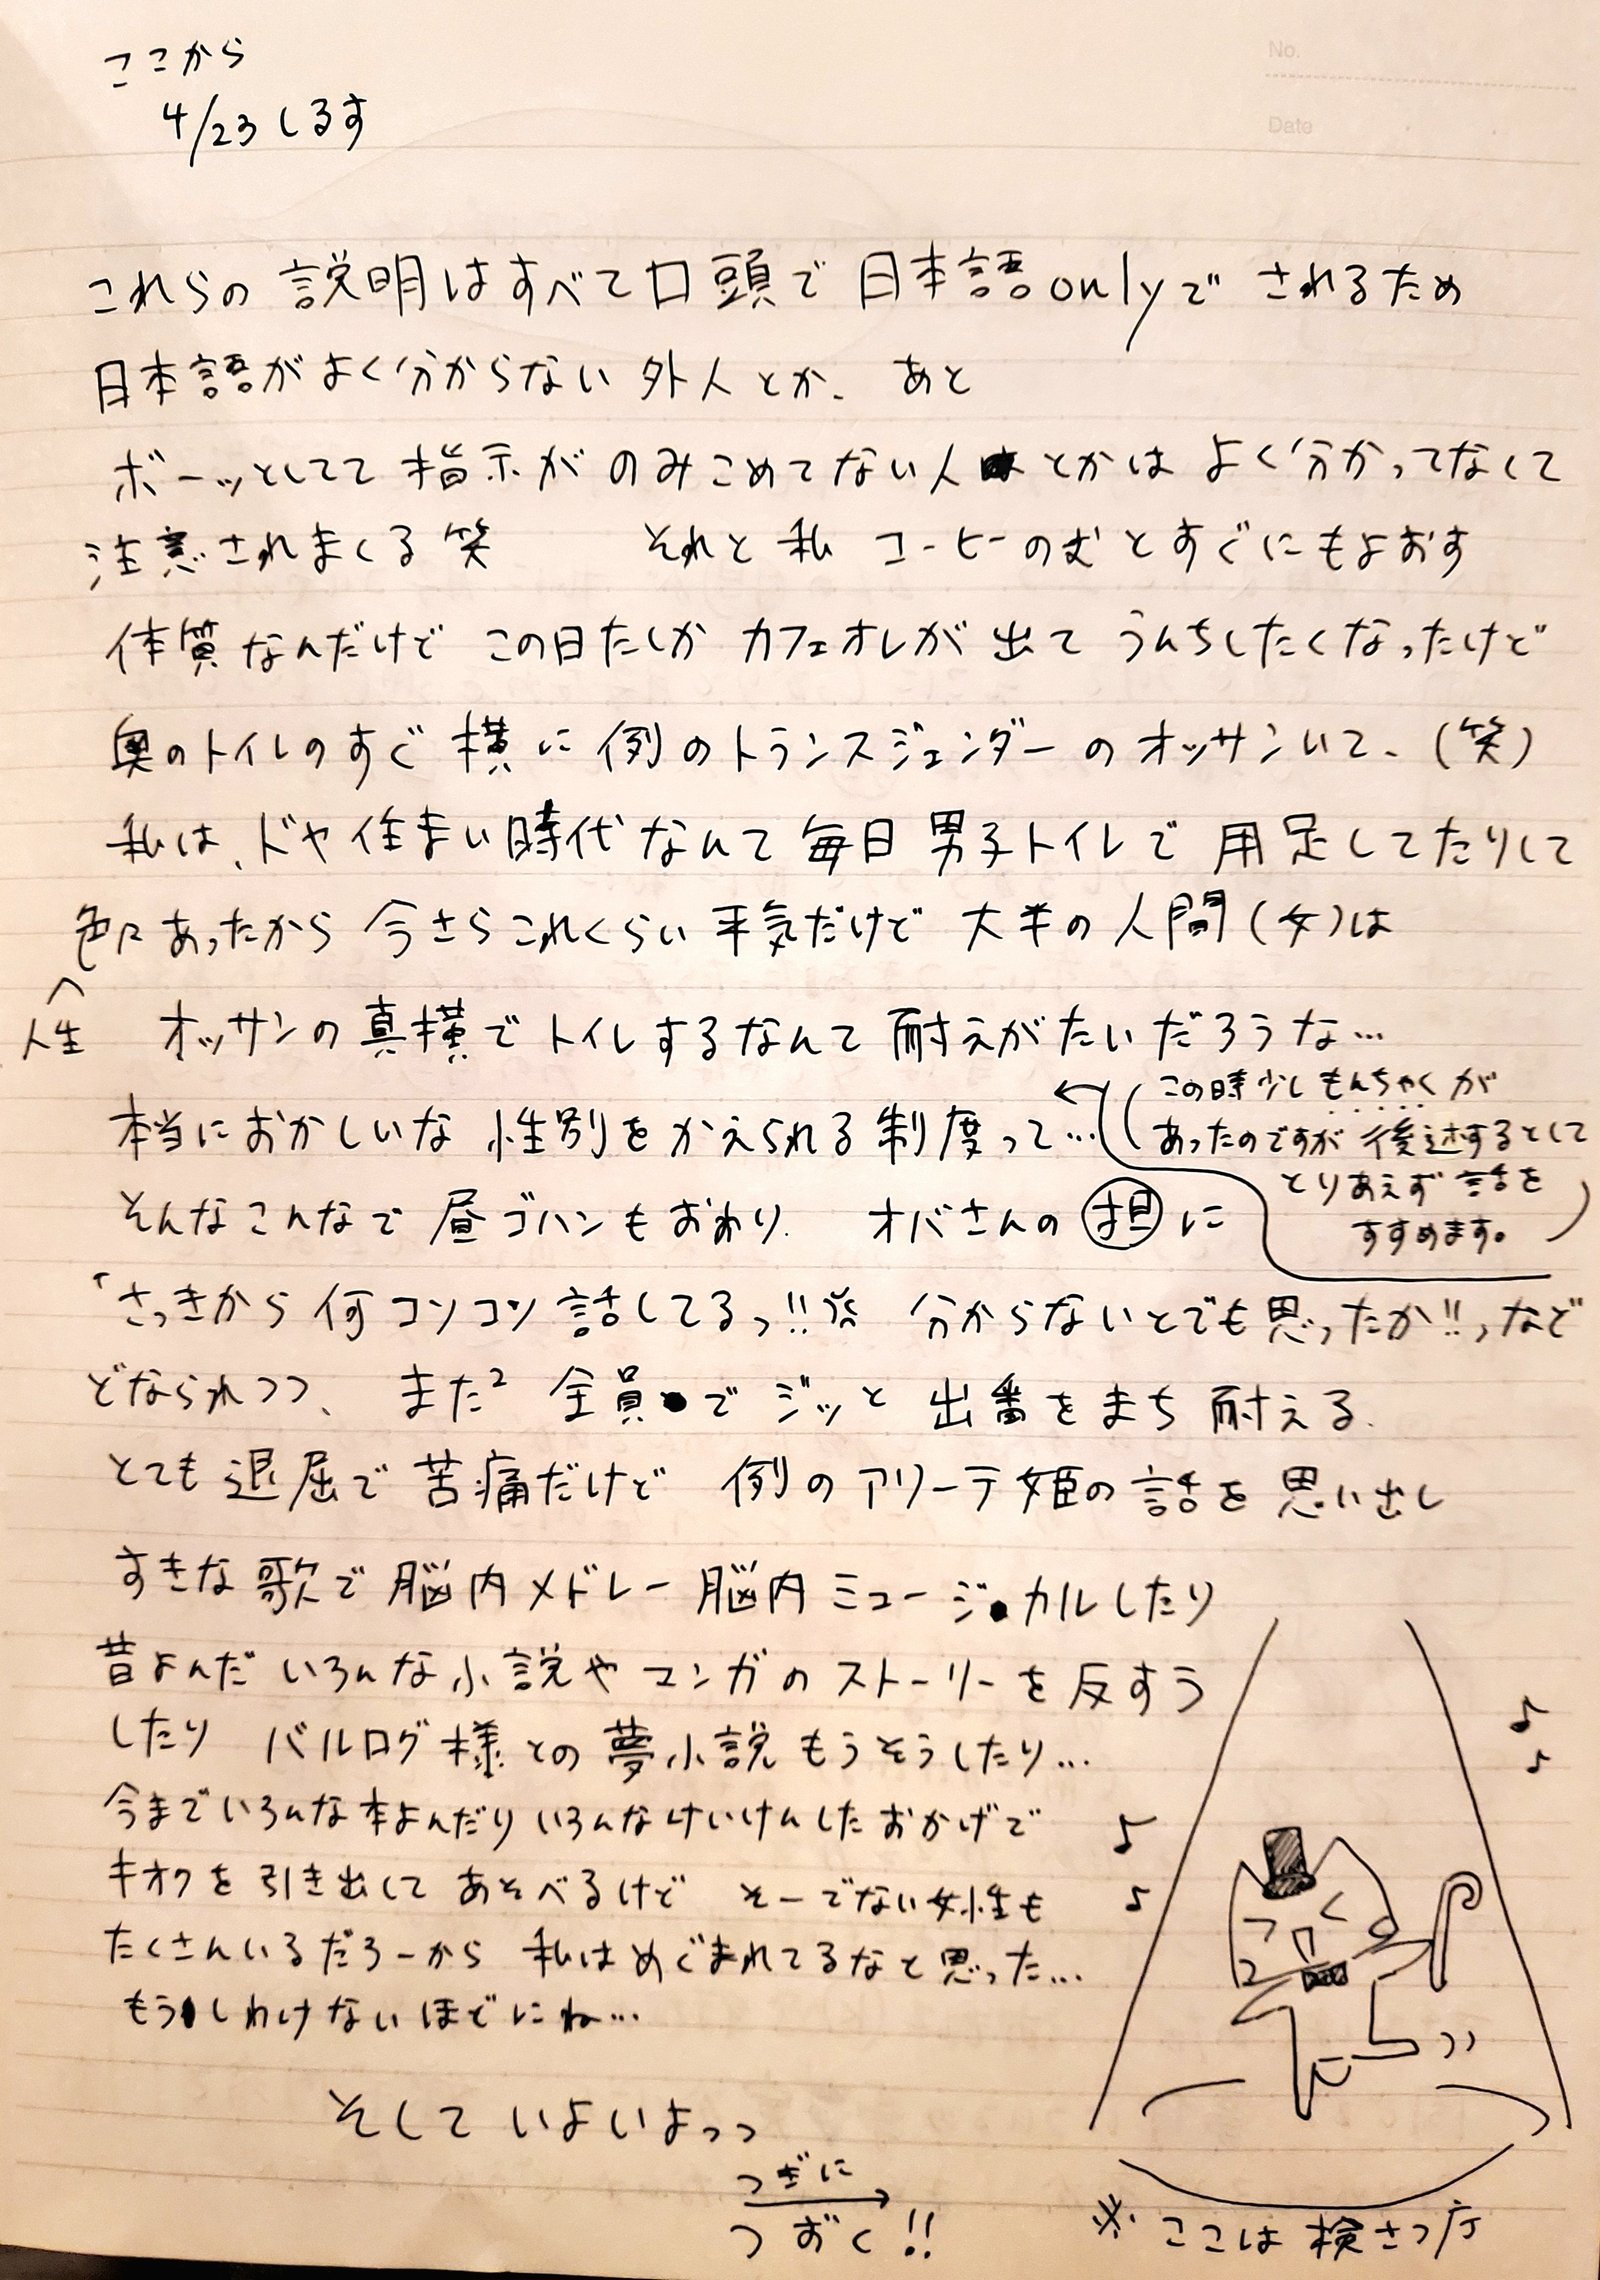 No.
Date
ここから
4/23しるす
これらの説明はすべて口頭で日本語onlyでされるため
日本語がよく分からない外人とか、あと
ボーッとしてて指示がのみこめてない人とかはよく分かってなくて
注意されまくる笑 それと私コーヒーのむとすぐにもよおす
体質なんだけどこの日たしかカフェオレが出てうんちしたくなったけど
奥のトイレのすぐ横に例のトランスジェンダーのオッサンいて、(笑)
私は、ドヤ住まい時代なんて毎日男子トイレで用足してたりして
色々あったから今さらこれくらい平気だけど大半の人間(女)は
へ
人生
オッサンの真横でトイレするなんて耐えがたいだろうな…
本当におかしいな性別をかえられる制度って…
(この時少しもんちゃくが
あったのですが後述するとして
とりあえず話を
すすめます。)
そんなこんなで昼ゴハンもおわり、オバさんの担に
「さっきから何コソコソ話してるっ!! 分からないとでも思ったか!!」など
どなられつつ、また²全員でジッと出番をまち耐える、
とても退屈で苦痛だけど例のアリーテ姫の話を思い出し
すきな歌で脳内メドレー脳内ミュージカルしたり
昔よんだいろんな小説やマンガのストーリーを反すう
したり バルログ様との夢小説もうそうしたり…
今までいろんな本よんだりいろんなけいけんしたおかげで
キオクを引き出してあそべるけど そーでない女性も
たくさんいるだろーから私はめぐまれてるなと思った…
もうしわけないほどにね…
そしていよいよっっ
つぎに
つづく!!
※ここは検さつ庁